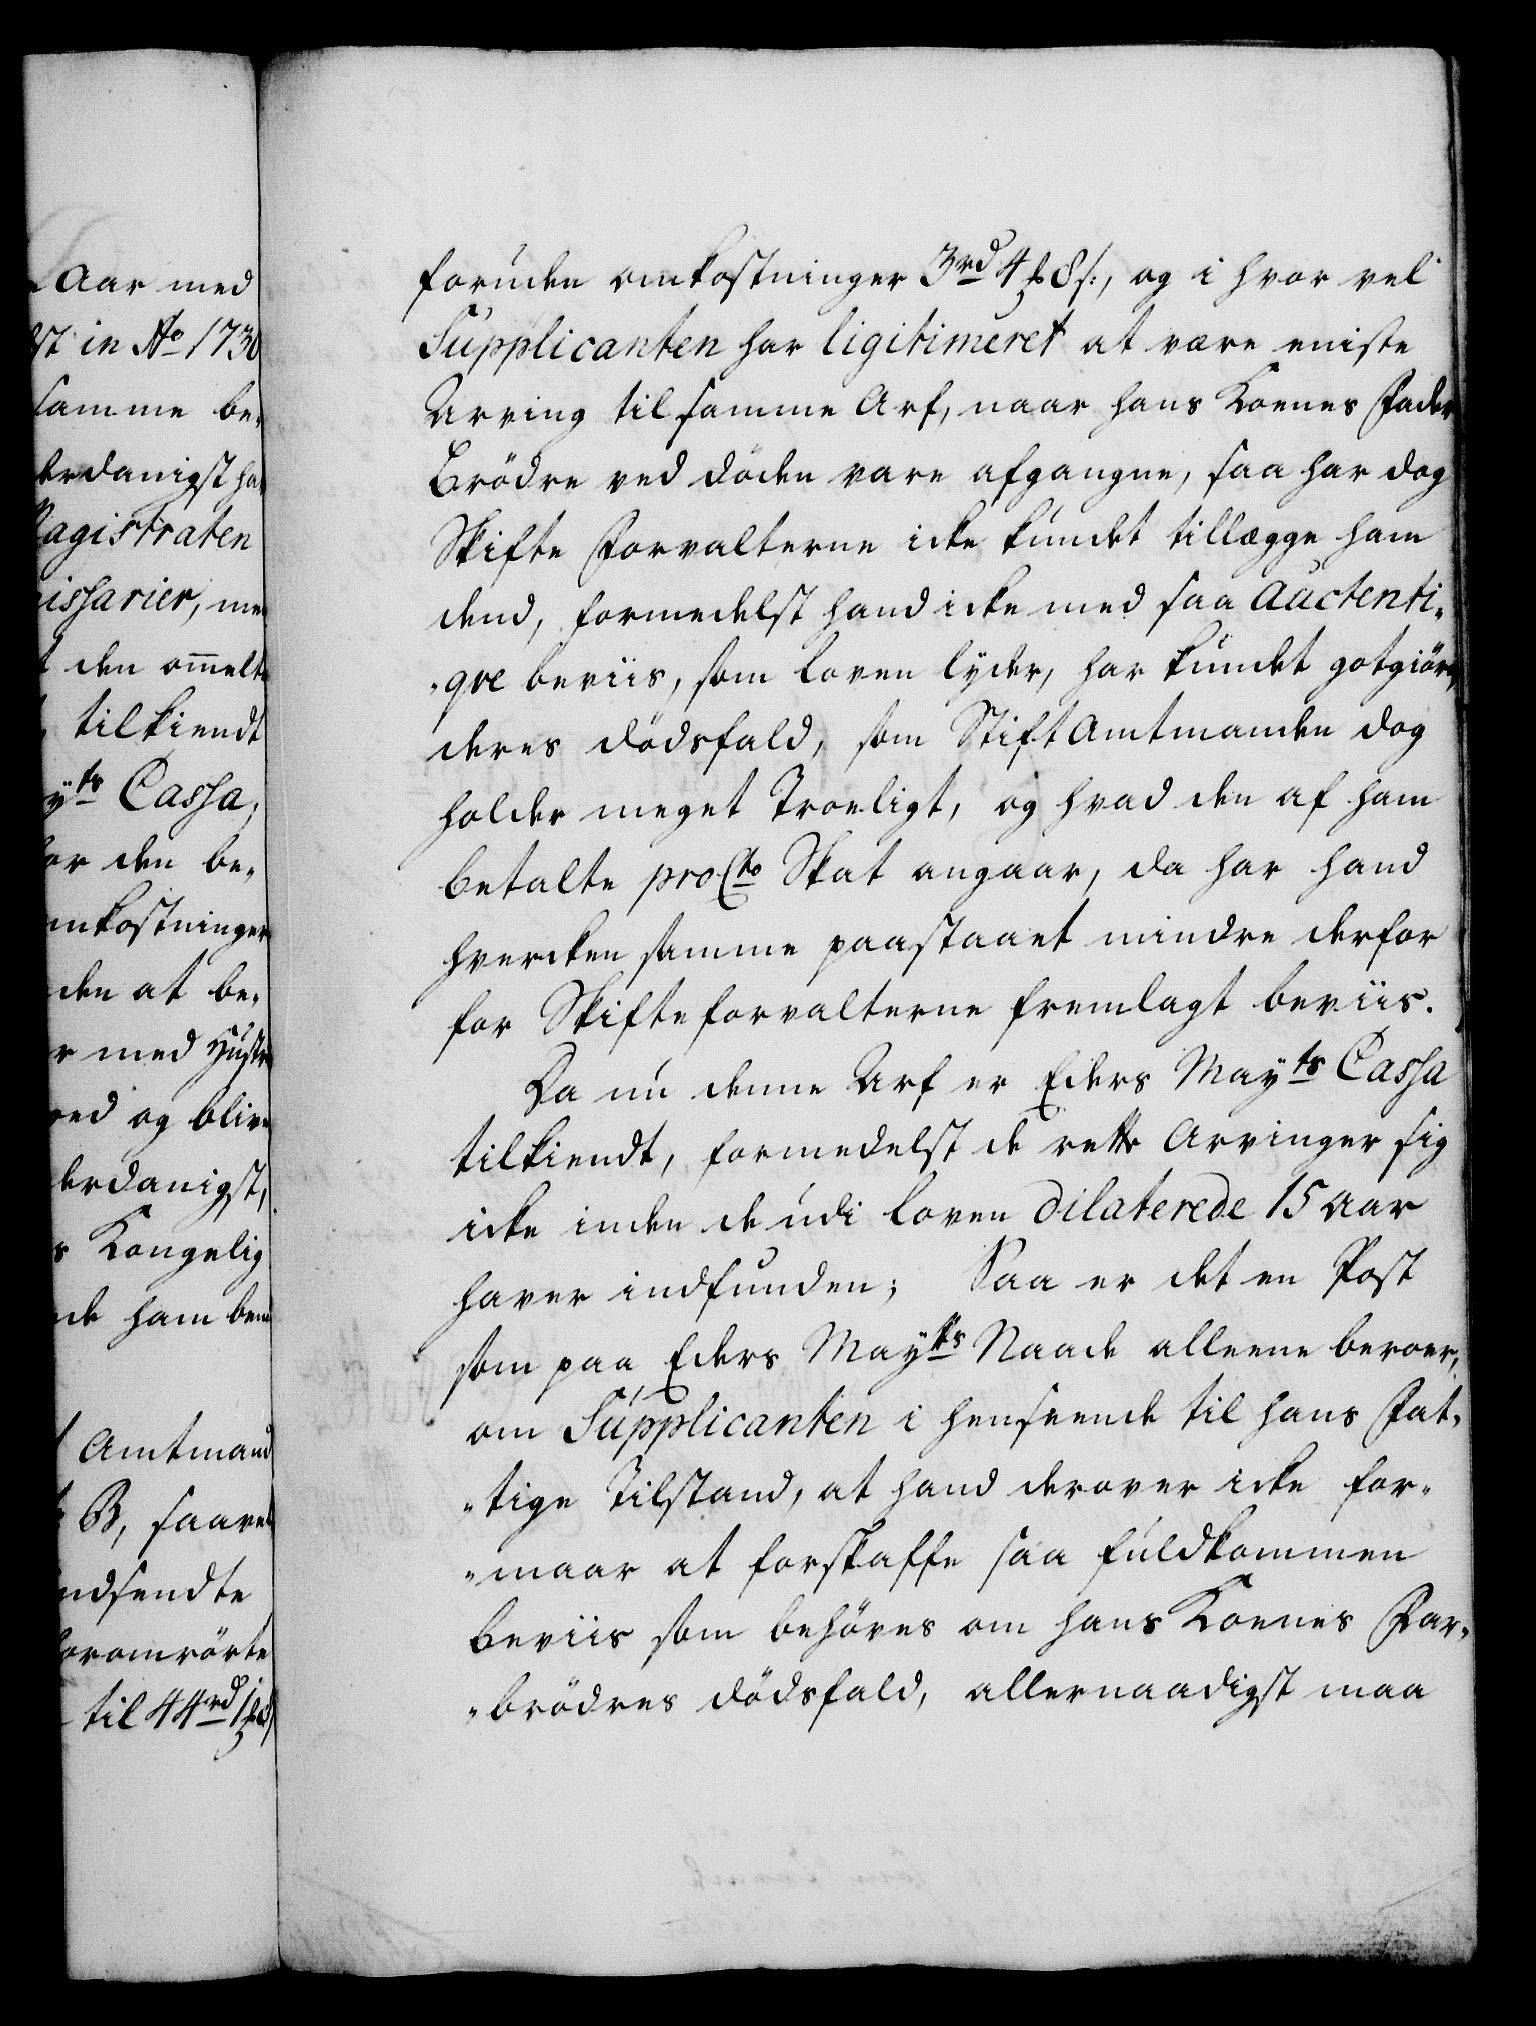 Aar med
st in Ao 1730
samme be-
derdanigst ha
Magistraten
issarier, me
den om̄elte
tilkiendt
yts Cassa,
for den be-
omkostninger
den at be-
r med Hustr
ved og blive
derdanigst,
s Kongelig
de ham ben
Amtmand
B, saavel
indsendte
foromrörte
til 44rd 1
foruden omkostninger 3rd 4 8s:, og i hvor vel
Supplicanten har ligitimeret at være eniste
Arving til samme Arf, naar hans Koenes Fader
Brödre ved döden vare afgangne, saa har dog
Skifte Forvalterne icke kundet tillægge ham
dend, formedelst hand icke med saa Auctenti-
-qve beviis, som loven lyder, har kundet gotgiöre,
deres dödsfald, som StiftAmtmanden dog
holder meget Troeligt, og hvad den af ham
betalte proCto Skat angaar, da har hand
hvercken samme paastaaet mindre derfor
for Skifteforvalterne fremlagt beviis.
Da nu denne Arf er Eders Mayts Cassa
tilkiendt, formedelst de rette Arvinger sig
icke inden de udi loven dilaterede 15 Aar
haver indfunden; Saa er det en Post
som paa Eders Mayts Naade alleene beroer,
om Supplicanten i henseende til hans Fat-
-tige Tilstand, at hand derover icke for-
-maar at forskaffe saa fuldkommen
beviis som behöves om hans Koenes Far-
-brödres dödsfald, allernaadigst maa